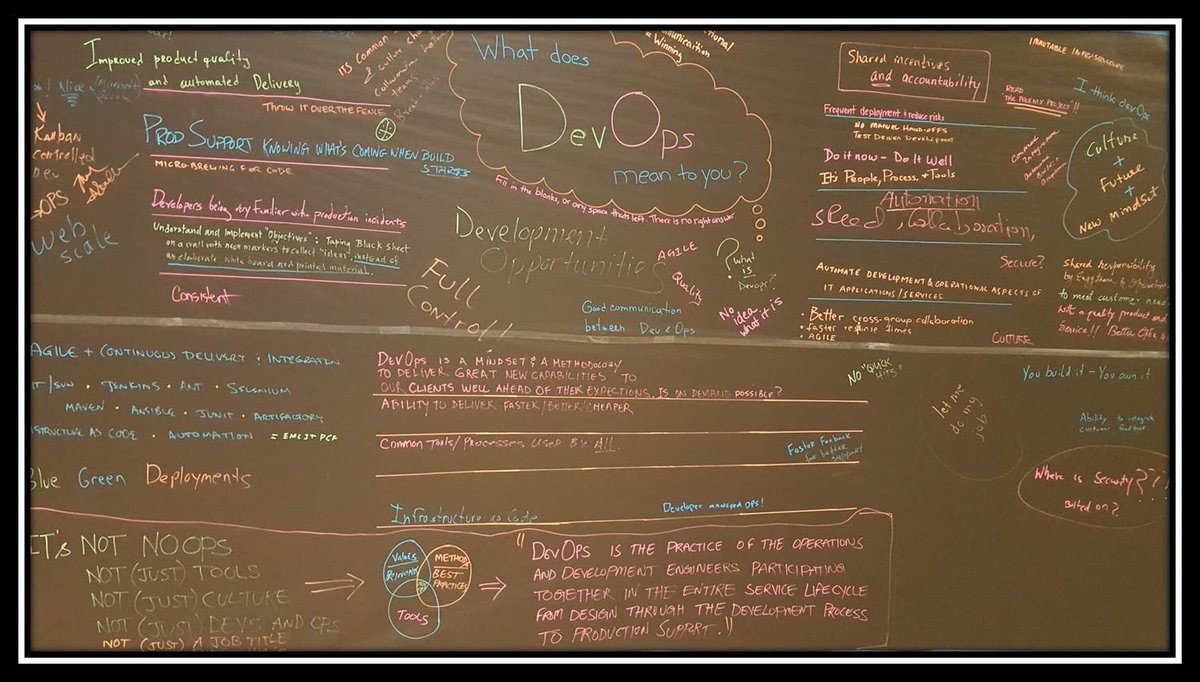 Improved product quality
and automated Delivery
THROW IT OVER THE FENCE
PROD SUPPORT KNOWING WHAT'S COMING WHEN BUILD
STARTS
MICRO BREWING FOR CODE
Developers being very Familier with production incidents
Understand and Implement "Objectives": Taping Black sheet
on a wall with neon markers to collect "ideas", instead of
an elaborate white board and printed material.
Consistent
Kanban
controlled
Dev
OPS
Web
scale
ITS COMMON
What does
DevOps
mean to you?
Fill in the blanks, or any space thats left. There is no right answer
= Winning
Development
Opportunities
Full
Control!
AGILE
Quality
Good communication
between Dev & Ops
? What
is
DevOps?
No idea
what it is
Shared incentives
and accountability
READ
THE PHOENIX PROJECT!!
Frequent deployment & reduce risks
NO MANUAL HAND-OFFS
TEST DRIVEN DEVELOPMENT
Do it now - Do It Well
It's People, Process, & Tools
Automation
Speed, Collaboration,
Secure?
AUTOMATE DEVELOPMENT & OPERATIONAL ASPECTS OF
IT APPLICATIONS/SERVICES.
• Better cross-group collaboration
• faster response times
• AGILE
CULTURE
IMMUTABLE INFRASTRUCTURE
I think devOps
Culture
+
Future
+
New Mindset
Shared responsibility
by Engineering & Operations
to meet customer needs
with a quality product and
Service!!
AGILE + CONTINUOUS DELIVERY & INTEGRATION
GIT/SVN • JENKINS • ANT • SELENIUM
MAVEN • ANSIBLE • JUNIT • ARTIFACTORY
STRUCTURE AS CODE • AUTOMATION = EMC IT PCF
Blue Green Deployments
DEVOPS IS A MINDSET & A METHODOLOGY
TO DELIVER GREAT NEW CAPABILITIES TO
OUR CLIENTS WELL AHEAD OF THEIR EXPECTIONS. IS ON DEMAND possible?
ABILITY TO DELIVER FASTER/BETTER/CHEAPER
COMMON TOOLS/PROCESSES USED BY ALL.
Faster Feedback
for better
support
Infrastructure as Code
Developer managed OPS!
NO "QUICK
HITS"
let me
do my
job
You build it - You own it
Ability to integrate
customer feedback
Where is Security??!!
Bolted on?
IT'S NOT NOOPS
NOT (JUST) TOOLS
NOT (JUST) CULTURE
NOT (JUST) DEVS AND OPS
NOT (JUST) A JOB TITLE
VALUES
PRINCIPLES
METHODS
BEST
PRACTICES
TOOLS
"DEVOPS IS THE PRACTICE OF THE OPERATIONS
AND DEVELOPMENT ENGINEERS PARTICIPATING
TOGETHER IN THE ENTIRE SERVICE LIFECYCLE
FROM DESIGN THROUGH THE DEVELOPMENT PROCESS
TO PRODUCTION SUPPORT."